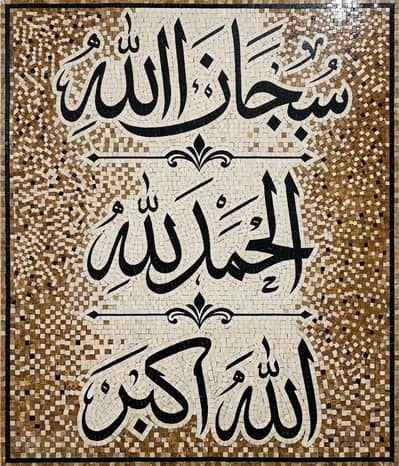 سُبحَانَ اللهِ
الحَمْدُ للهِ
اللهُ أكبَر